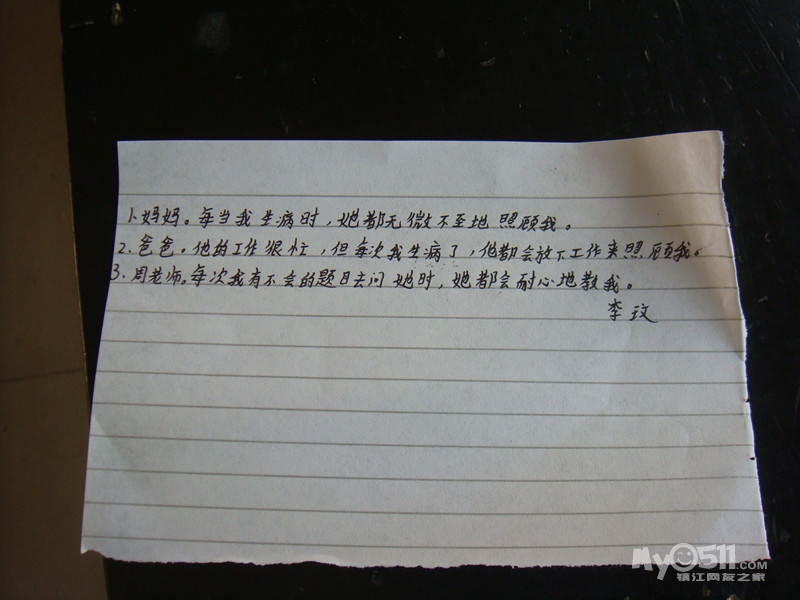 1、妈妈。每当我生病时，她都无微不至地照顾我。
2、爸爸。他的工作很忙，但每次我生病了，他都会放下工作来照顾我。
3、周老师。每次我有不会的题目去问她时，她都会耐心地教我。
李玟
My0511.COM
镇江网友之家